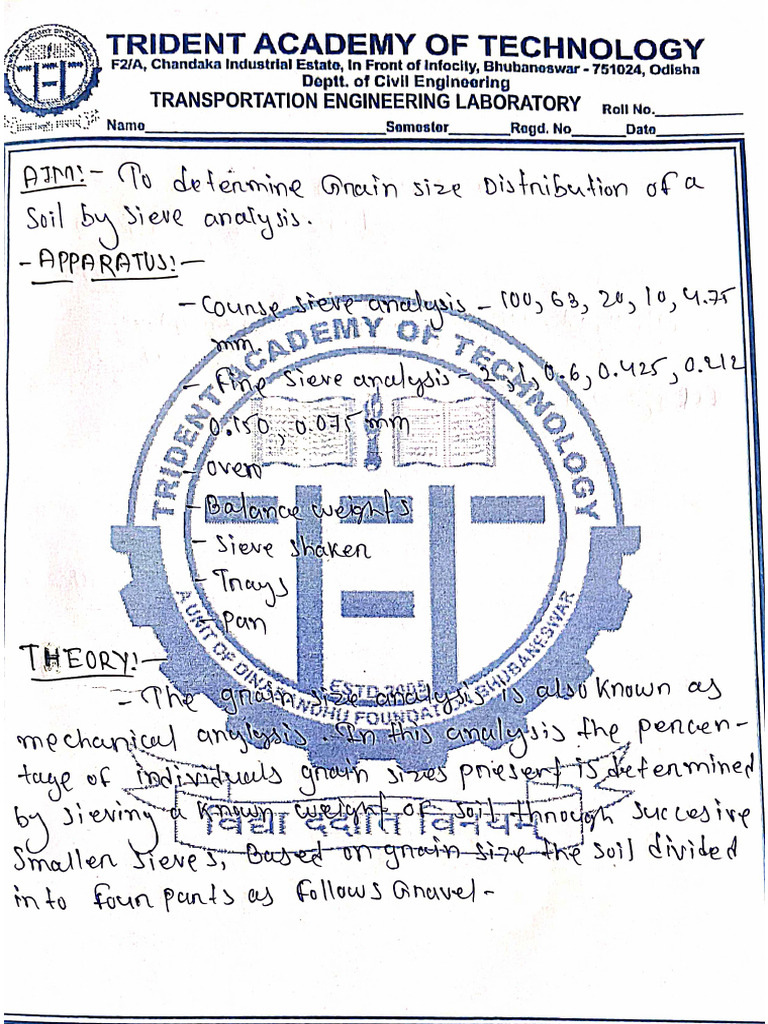 TRIDENT ACADEMY OF TECHNOLOGY
F2/A, Chandaka Industrial Estate, In Front of Infocity, Bhubaneswar - 751024, Odisha
Deptt. of Civil Engineering
TRANSPORTATION ENGINEERING LABORATORY Roll No.
Name Semester Regd. No Date
AIM:- To determine Grain size Distribution of a
Soil by Sieve analysis.
- APPARATUS:-
- Course sieve analysis - 100, 63, 20, 10, 4.75
mm.
- Fine sieve analysis - 2, 1, 0.6, 0.425, 0.212
0.150, 0.075 mm
- oven
- Balance weights
- Sieve shaker
- Trays
- pan
THEORY:-
- The grain size analysis is also known as
mechanical anylysis. In this analysis the percen-
tage of individuals grain sizes present is determined
by sieving a known weight of soil through succesive
Smaller sieves, Based on grain size the soil divided
into four parts as follows Gravel -
TRIDENT ACADEMY OF TECHNOLOGY
A UNIT OF DINABANDHU FOUNDATION, BHUBANESWAR
विद्या ददाति विनयम्